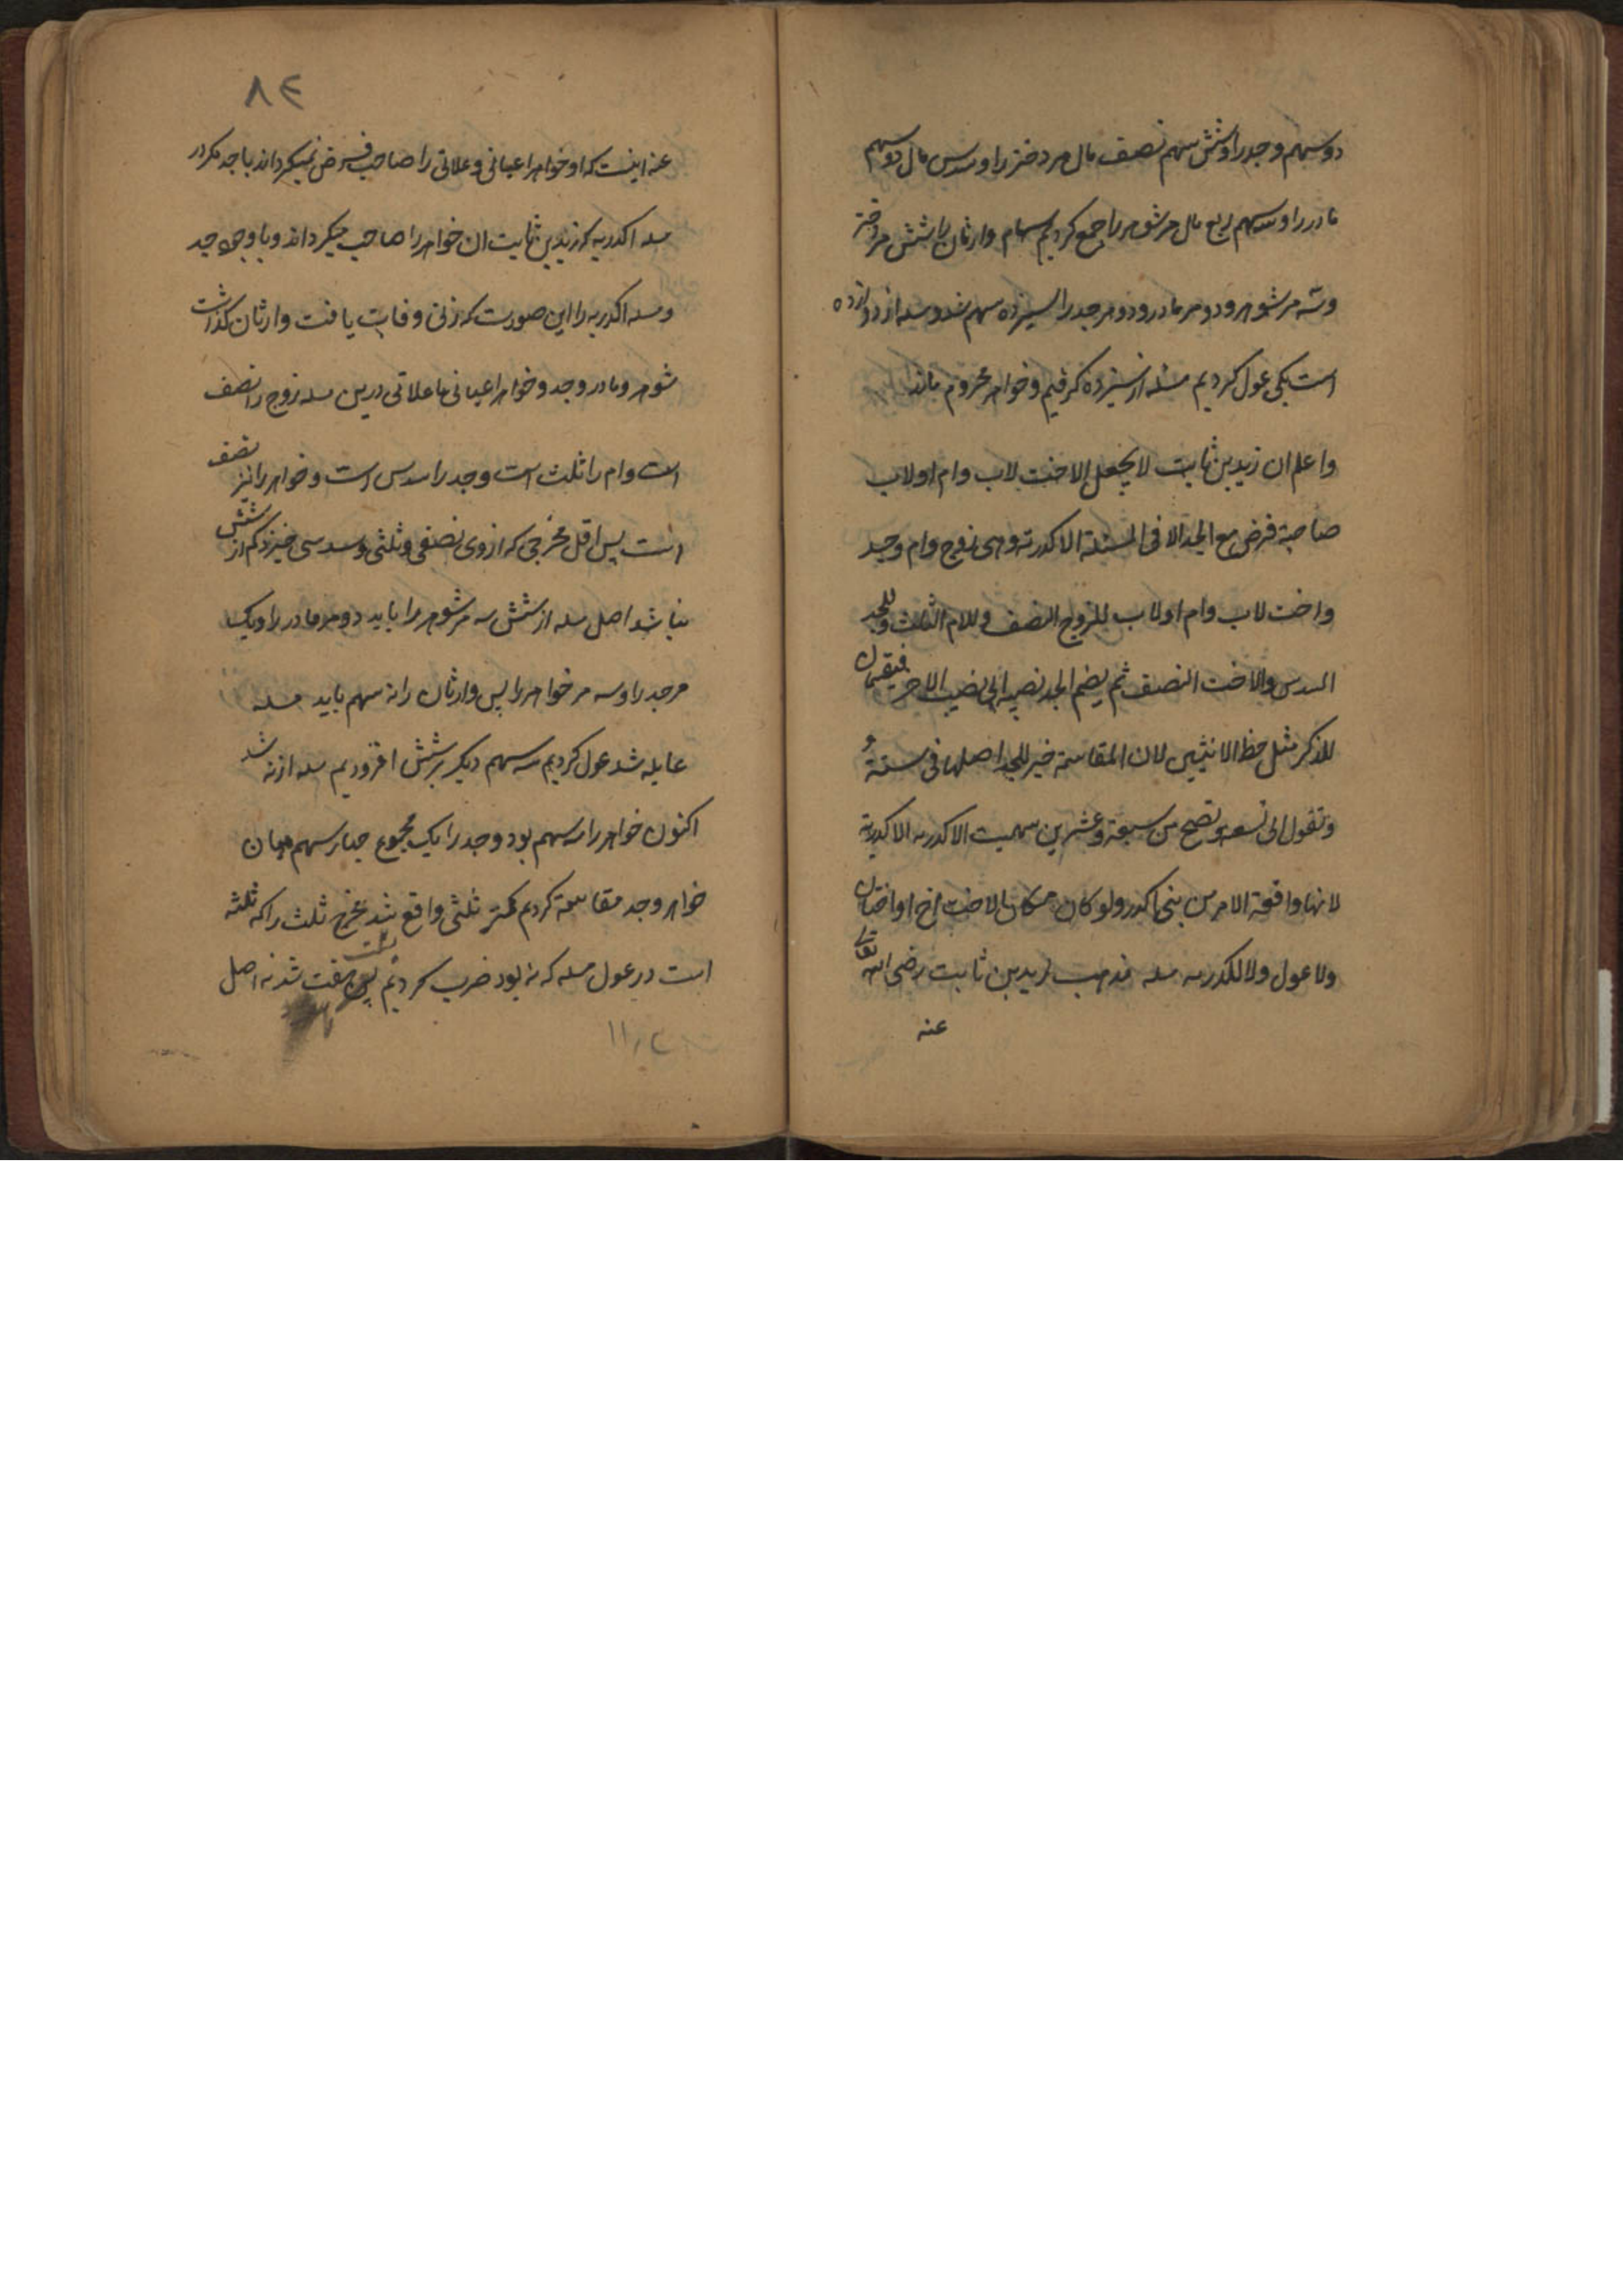 دو سهم و جد را و شش سهم نصف مال مر دختر را و سدس مال دو سهم
مادر را و سه سهم ربع مال مر شوهر را جمع کردیم سهام وارثان را شش مر دختر
و سه مر شوهر و دو مر مادر و دو مر جد را سیزده سهم شد و مسله از دوازده
است یکی عول کردیم مسئله از سیزده کرفتیم و خواهر محروم ماند
واعلم ان زید بن ثابت لا یجعل الاخت لاب وام او لاب
صاحبة فرض مع الجد الا فی المسئلة الاکدریة وهی زوج وام وجد
واخت لاب وام او لاب للزوج النصف وللام الثلث وللجد
السدس والاخت النصف ثم یضم الجد نصیبه الی نصیب الاخت فیقسمان
للذکر مثل حظ الانثیین لان المقاسمة خیر للجد اصلها فی ستة و
وتعول الی تسعة وتصح من سبعة وعشرین سمیت الاکدریه الاکدریة
لانها واقعة الامر من بنی اکدر ولو کان مکان الاخت اخ او اختان
ولا عول ولا الکدریه مسله مذهب زید بن ثابت رضی الله تعالی
عنه
٨٤
عنه اینست که او خواهر اعیانی و علاتی را صاحب فرض نمیکرداند با جد مکر در
مسله اکدریه که زید بن ثابت ان خواهر را صاحب میکرداند و با وجود جد
و مسله اکدریه را این صورت که زنی وفات یافت و وارثان کذاشت
شوهر و مادر و جد و خواهر اعیانی یا علاتی درین مسله زوج را نصف
است و ام را ثلث است و جد را سدس است و خواهر را نیز نصف
است پس اقل مخرجی که از وی نصفی و ثلثی و سدسی خیزد کم از شش
نباشد اصل مسله از شش سه مر شوهر را باید دو مر مادر را و یک
مر جد را و سه مر خواهر را پس وارثان را نه سهم باید مسله
عایله شد عول کردیم سه سهم دیکر بر شش افزودیم مسله از نه شد
اکنون خواهر را سه سهم بود و جد را یک مجموع چهار سهم میان
خواهر و جد مقاسمه کردیم کسر ثلثی واقع شد مخرج ثلث را که ثلثه
است در عول مسله که نه بود ضرب کردیم بیست هفت شد نه اصل